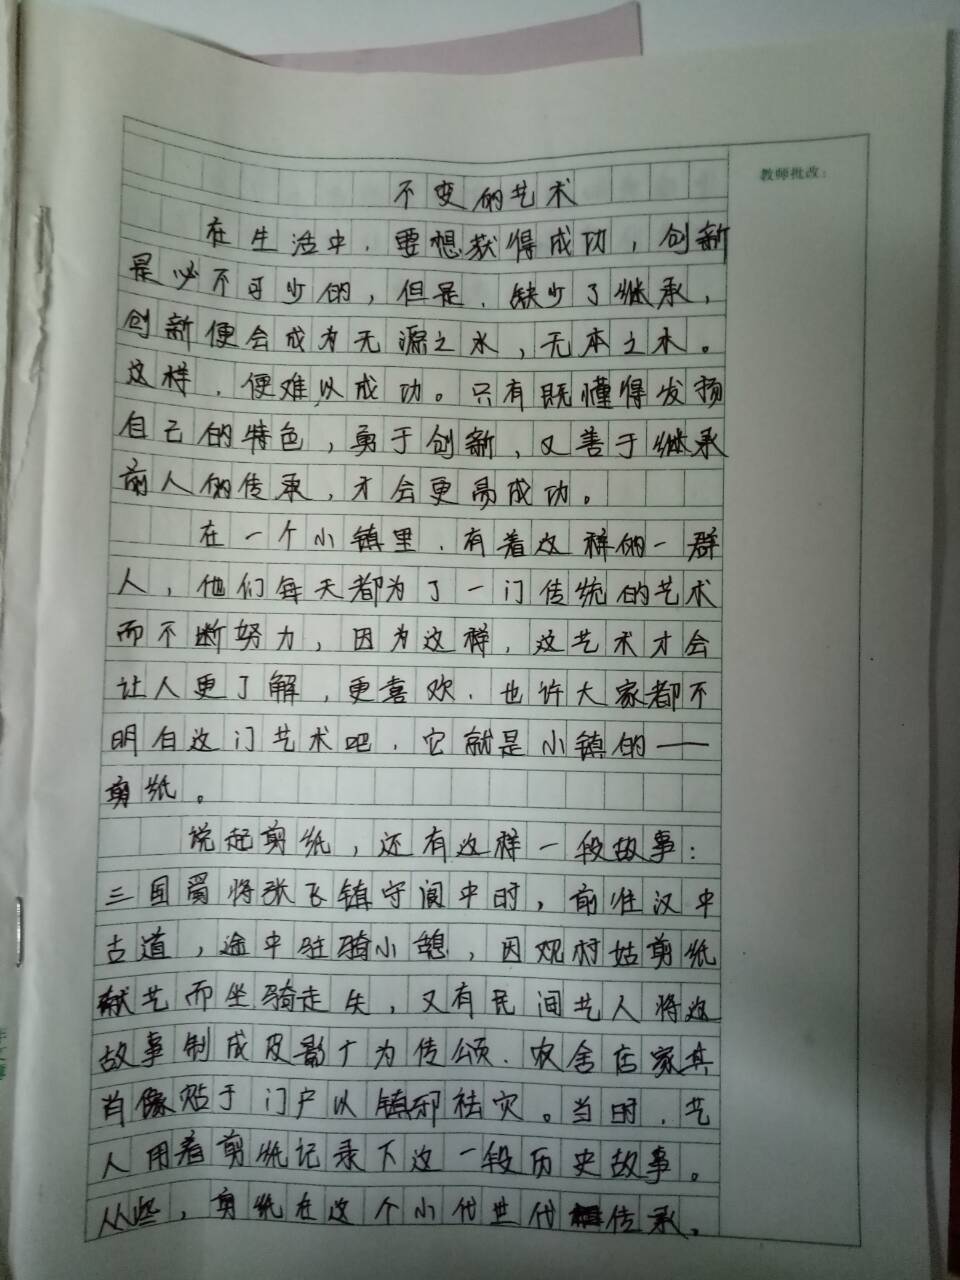 教师批改：
不变的艺术
在生活中，要想获得成功，创新
是必不可少的，但是，缺少了继承，
创新便会成为无源之水，无本之木。
这样，便难以成功。只有既懂得发扬
自己的特色，勇于创新，又善于继承
前人的传承，才会更易成功。
在一个小镇里，有着这样的一群
人，他们每天都为了一门传统的艺术
而不断努力，因为这样，这艺术才会
让人更了解，更喜欢．也许大家都不
明白这门艺术吧，它就是小镇的——
剪纸。
说起剪纸，还有这样一段故事：
三国蜀将张飞镇守阆中时，前往汉中
古道，途中驻骑小憩，因观村姑剪纸
献艺而坐骑走失，又有民间艺人将这
故事制成皮影广为传颂．农舍店家其
肖像贴于门户以镇邪祛灾。当时，艺
人用着剪纸记录下这一段历史故事。
从此，剪纸在这个小代世代传承，